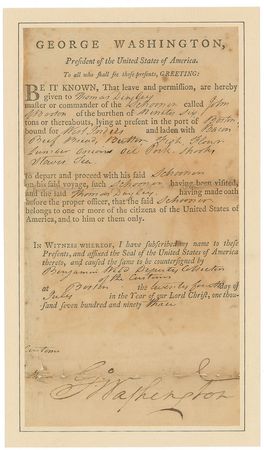 GEORGE WASHINGTON,
President of the United States of America.
To all who shall see these presents, GREETING:
BE IT KNOWN, That leave and permission, are hereby
given to Thomas
master or commander of the Schooner called John
of the burthen of Ninety Six
tons or thereabouts, lying at present in the port of Boston
bound for West Indies and laden with Bacon
Beef Bread, Butter Fish Flour
Lumber Onions Oil Pork
Tea
To depart and proceed with his said Schooner
on his said voyage, such Schooner having been visited
and the said Thomas having made oath
before the proper officer, that the said Schooner
belongs to one or more of the citizens of the United States of
America, and to him or them only.
IN WITNESS WHEREOF, I have subscribed my name to these
Presents, and affixed the Seal of the United States of America
thereto, and caused the same to be countersigned by
Benjamin Weld Deputy Collector
of the Customs
at Boston the twenty first day of
July in the Year of our Lord Christ, one thou-
sand seven hundred and ninety three
G Washington